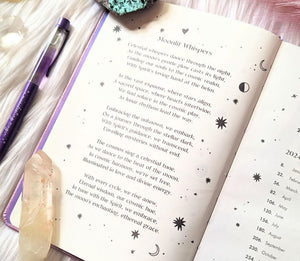 Moonlit Whispers
Celestial whispers dance through the night,
As the moon's gentle glow casts its light,
Guiding our souls to the cosmic realm,
With Spirit's loving hand at the helm.
In the vast expanse, where stars align,
A sacred space, where hearts intertwine,
We find solace in the cosmic plan,
As lunar rhythms lead the way.
Embracing the unknown, we embark,
On a journey through the stellar dark,
With Spirit's guidance, we transcend,
Unveiling mysteries without end.
The cosmos sing a celestial tune,
As we dance to the beat of the moon,
In cosmic harmony, we're set free,
Illuminated in love and divine energy.
With every cycle, we rise anew,
Eternal wisdom, our cosmic hue,
In tune with the Spirit, we embrace,
The moon's enchanting, ethereal grace.
July
August
September
October